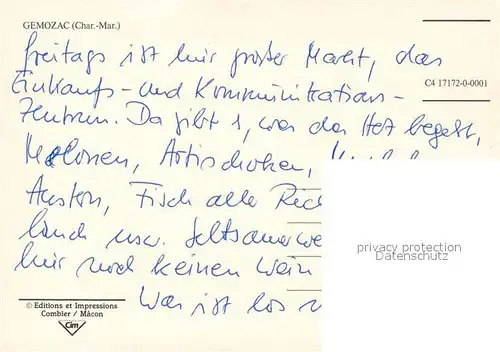 GEMOZAC (Char.-Mar.)
freitags ist hier großer Markt, das
Einkaufs- und Kommunikations-
C4 17172-0-0001
Zentrum. Da gibt's, was das Herz begehrt,
Melonen, Artischoken,
Austern, Fisch alle
land usw. Seltsamerwe
hier noch keinen Wein
privacy protection
Datenschutz
© Editions et Impressions
Combier / Mâcon
Cim
Was ist los